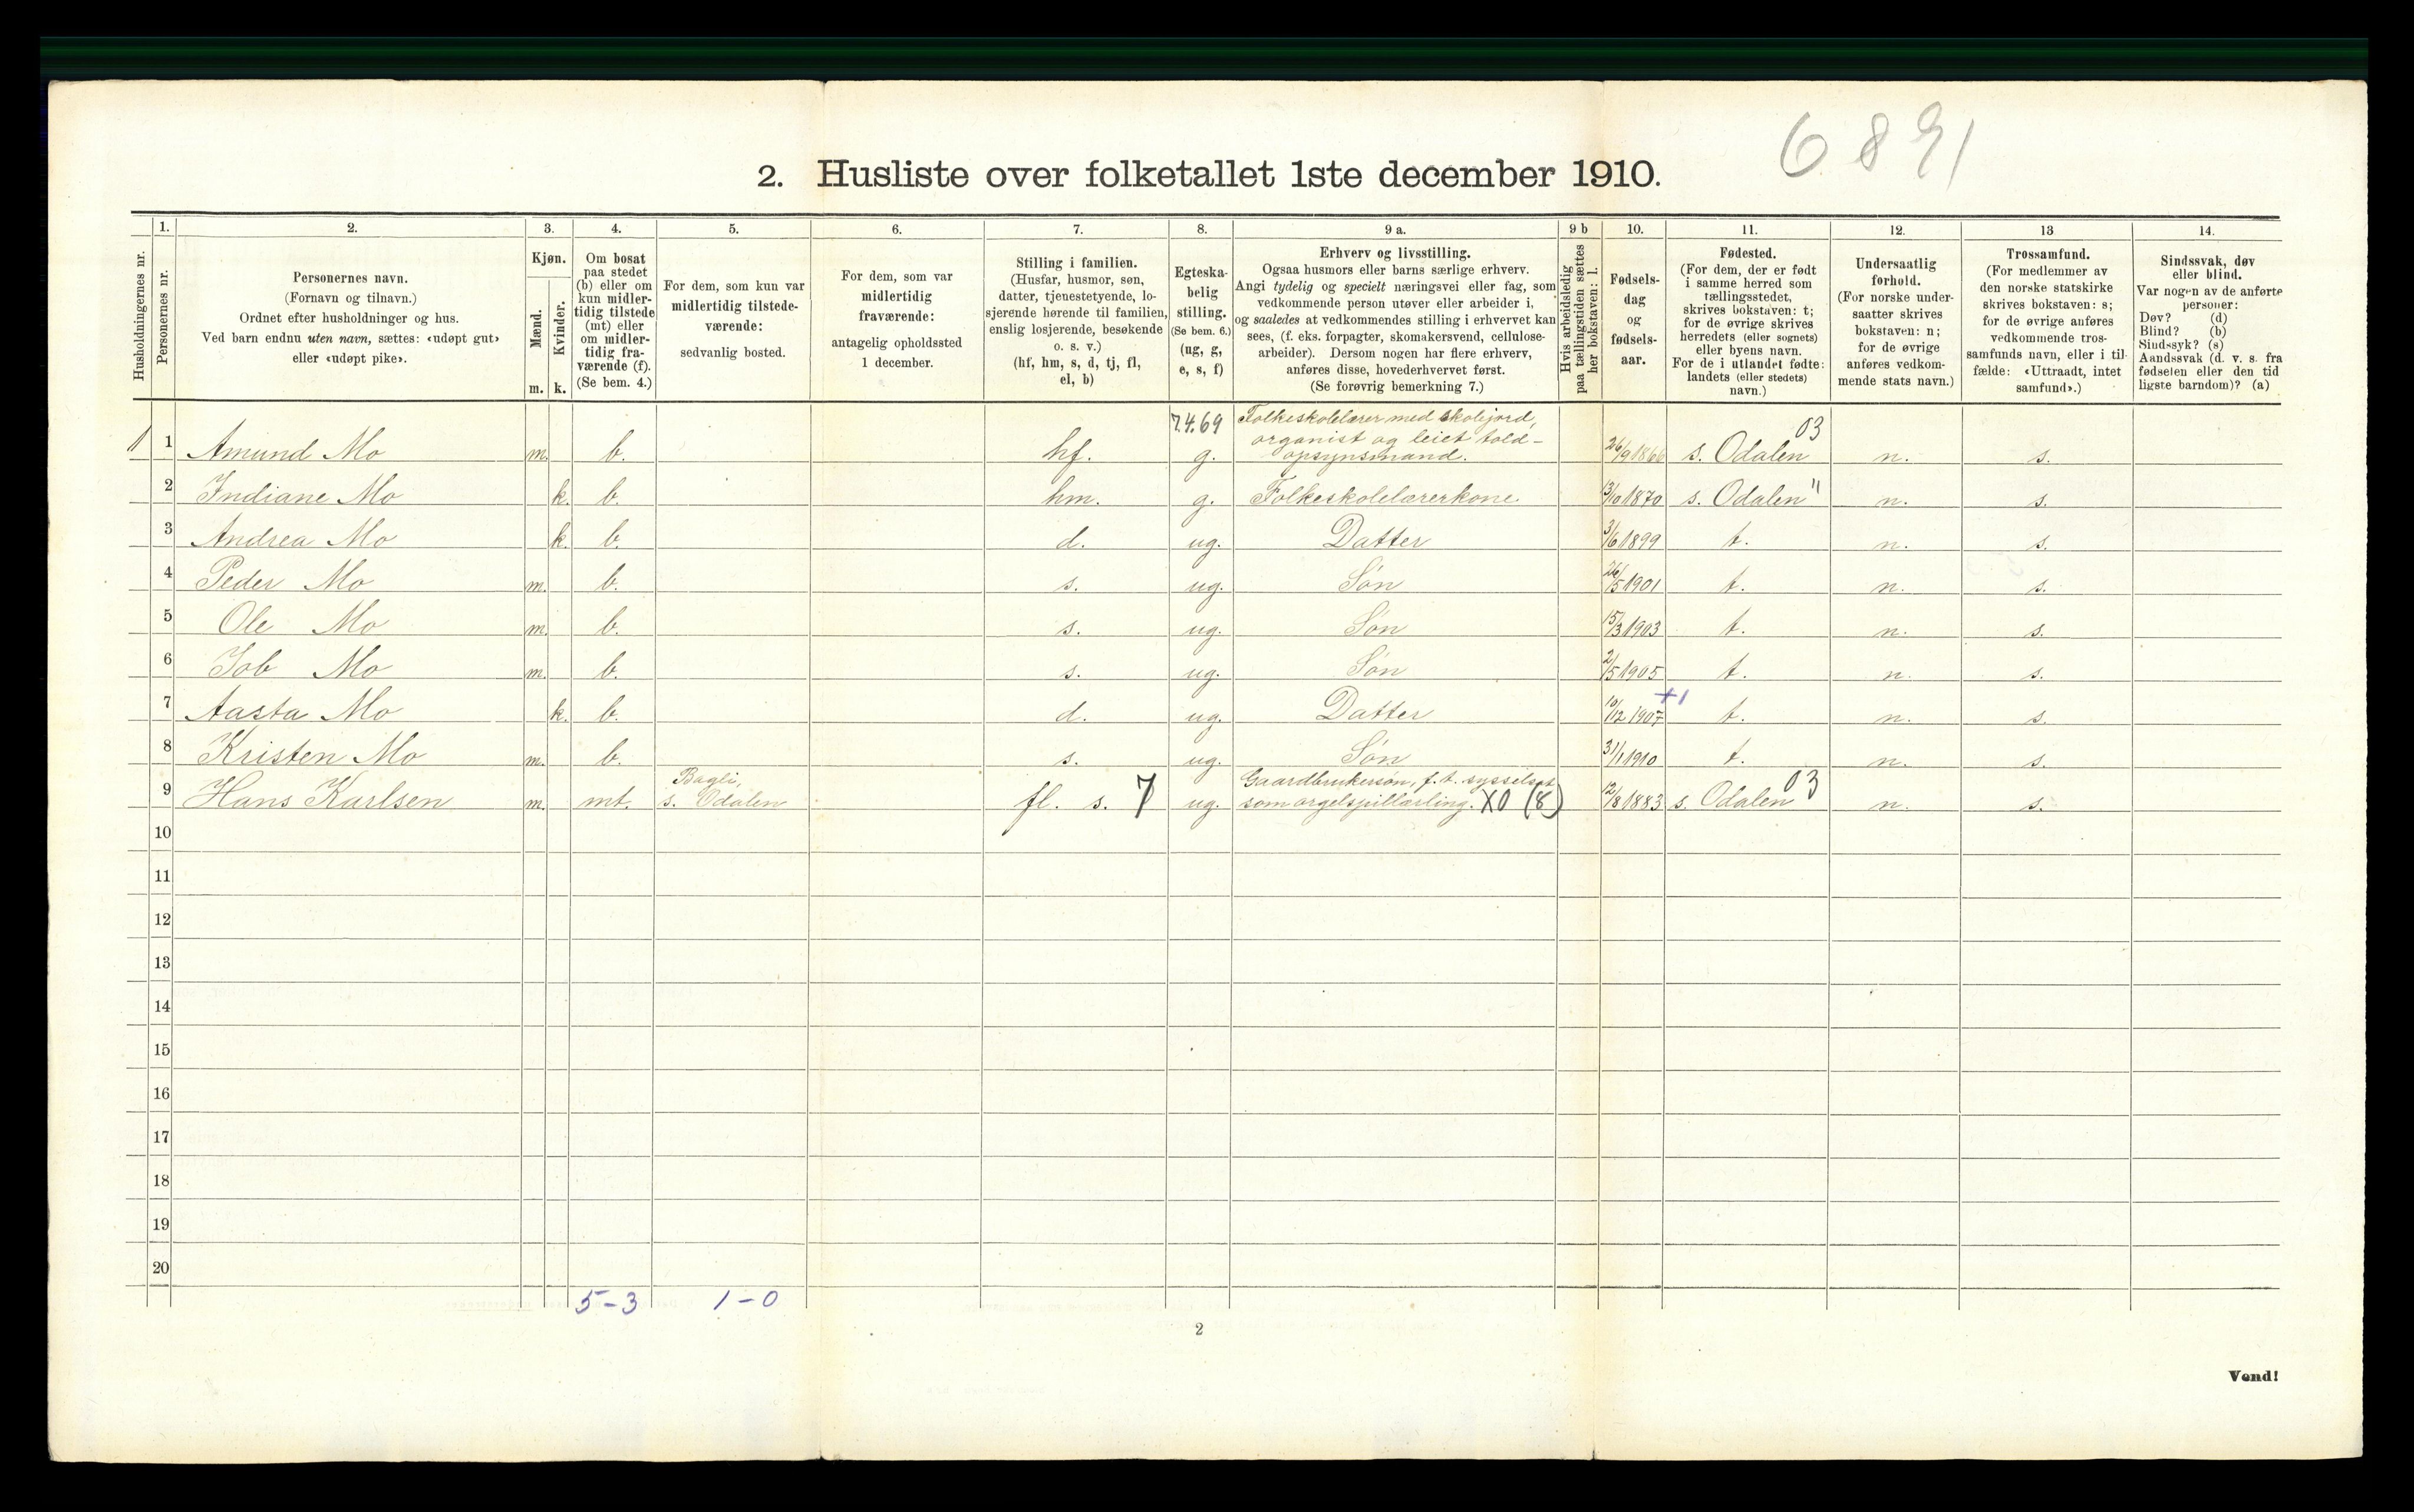 6891
2. Husliste over folketallet 1ste december 1910.
Husholdningernes nr.
1.
Personernes nr.
2.
Personernes navn.
(Fornavn og tilnavn.)
Ordnet efter husholdninger og hus.
Ved barn endnu uten navn, sættes: «udøpt gut»
eller «udøpt pike».
3.
Kjøn.
Mænd.
m.
Kvinder.
k.
4.
Om bosat
paa stedet
(b) eller om
kun midler-
tidig tilstede
(mt) eller
om midler-
tidig fra-
værende (f).
(Se bem. 4.)
5.
For dem, som kun var
midlertidig tilstede-
værende:
sedvanlig bosted.
6.
For dem, som var
midlertidig
fraværende:
antagelig opholdssted
1 december.
7.
Stilling i familien.
(Husfar, husmor, søn,
datter, tjenestetyende, lo-
sjerende hørende til familien,
enslig losjerende, besøkende
o. s. v.)
(hf, hm, s, d, tj, fl,
el, b)
8.
Egteska-
belig
stilling.
(Se bem. 6.)
(ug, g,
e, s, f)
9 a.
Erhverv og livsstilling.
Ogsaa husmors eller barns særlige erhverv.
Angi tydelig og specielt næringsvei eller fag, som
vedkommende person utøver eller arbeider i,
og saaledes at vedkommendes stilling i erhvervet kan
sees, (f. eks. forpagter, skomakersvend, cellulose-
arbeider). Dersom nogen har flere erhverv,
anføres disse, hovederhvervet først.
(Se forøvrig bemerkning 7.)
9 b
Hvis arbeidsledig
paa tællingstiden sættes
her bokstaven: l.
10.
Fødsels-
dag
og
fødsels-
aar.
11.
Fødested.
(For dem, der er født
i samme herred som
tællingsstedet,
skrives bokstaven: t;
for de øvrige skrives
herredets (eller sognets)
eller byens navn.
For de i utlandet fødte:
landets (eller stedets)
navn.)
12.
Undersaatlig
forhold.
(For norske under-
saatter skrives
bokstaven: n;
for de øvrige
anføres vedkom-
mende stats navn.)
13
Trossamfund.
(For medlemmer av
den norske statskirke
skrives bokstaven: s;
for de øvrige anføres
vedkommende tros-
samfunds navn, eller i til-
fælde: «Uttraadt, intet
samfund».)
14.
Sindssvak, døv
eller blind.
Var nogen av de anførte
personer:
Døv? (d)
Blind? (b)
Sindssyk? (s)
Aandssvak (d. v. s. fra
fødselen eller den tid
ligste barndom)? (a)
7.4.69 Folkeskolelærer med skolejord,
organist og leiet told-
1 1 Amund Mo m. b. hf. g. opsynsmand. 26/9 1866 s. Odalen 03 n. s.
2 Indiane Mo k. b. hm. g. Folkeskolelærerkone 13/10 1870 s. Odalen " n. s.
3 Andrea Mo k. b. d. ug. Datter 3/6 1899 t. n. s.
4 Peder Mo m. b. s. ug. Søn 26/5 1901 t. n. s.
5 Ole Mo m. b. s. ug. Søn 15/3 1903 t. n. s.
6 Job Mo m. b. s. ug. Søn 2/5 1905 t. n. s.
7 Aasta Mo k. b. d. ug. Datter 10/12 1907 +1 t. n. s.
8 Kristen Mo m. b. s. ug. Søn 31/1 1910 t. n. s.
Bagli, Gaardbrukersøn, f.t. sysselsat
9 Hans Karlsen m. mt. s. Odalen fl. s. 7 ug. som orgelspillærling. X0 (8) 12/8 1883 s. Odalen 03 n. s.
10
11
12
13
14
15
16
17
18
19
20
5-3 1-0
2
Vend!